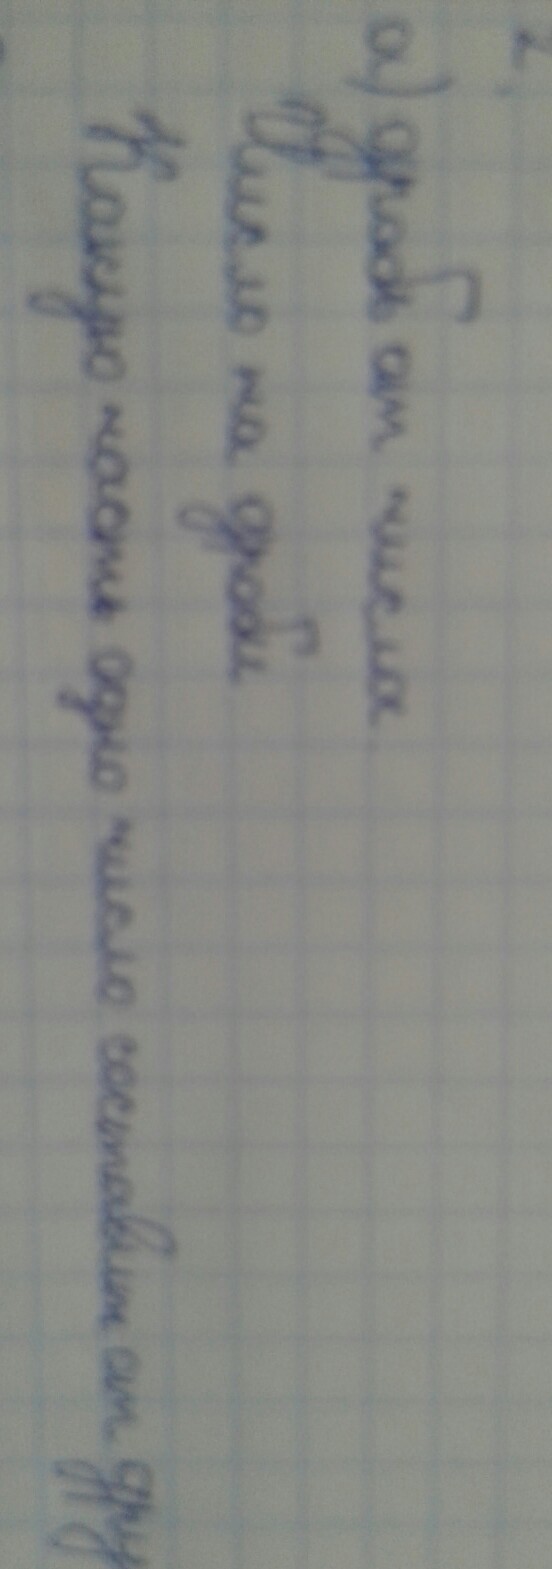 2.
а) дробь от числа
Число на дроби
Какую часть одно число составит от дру